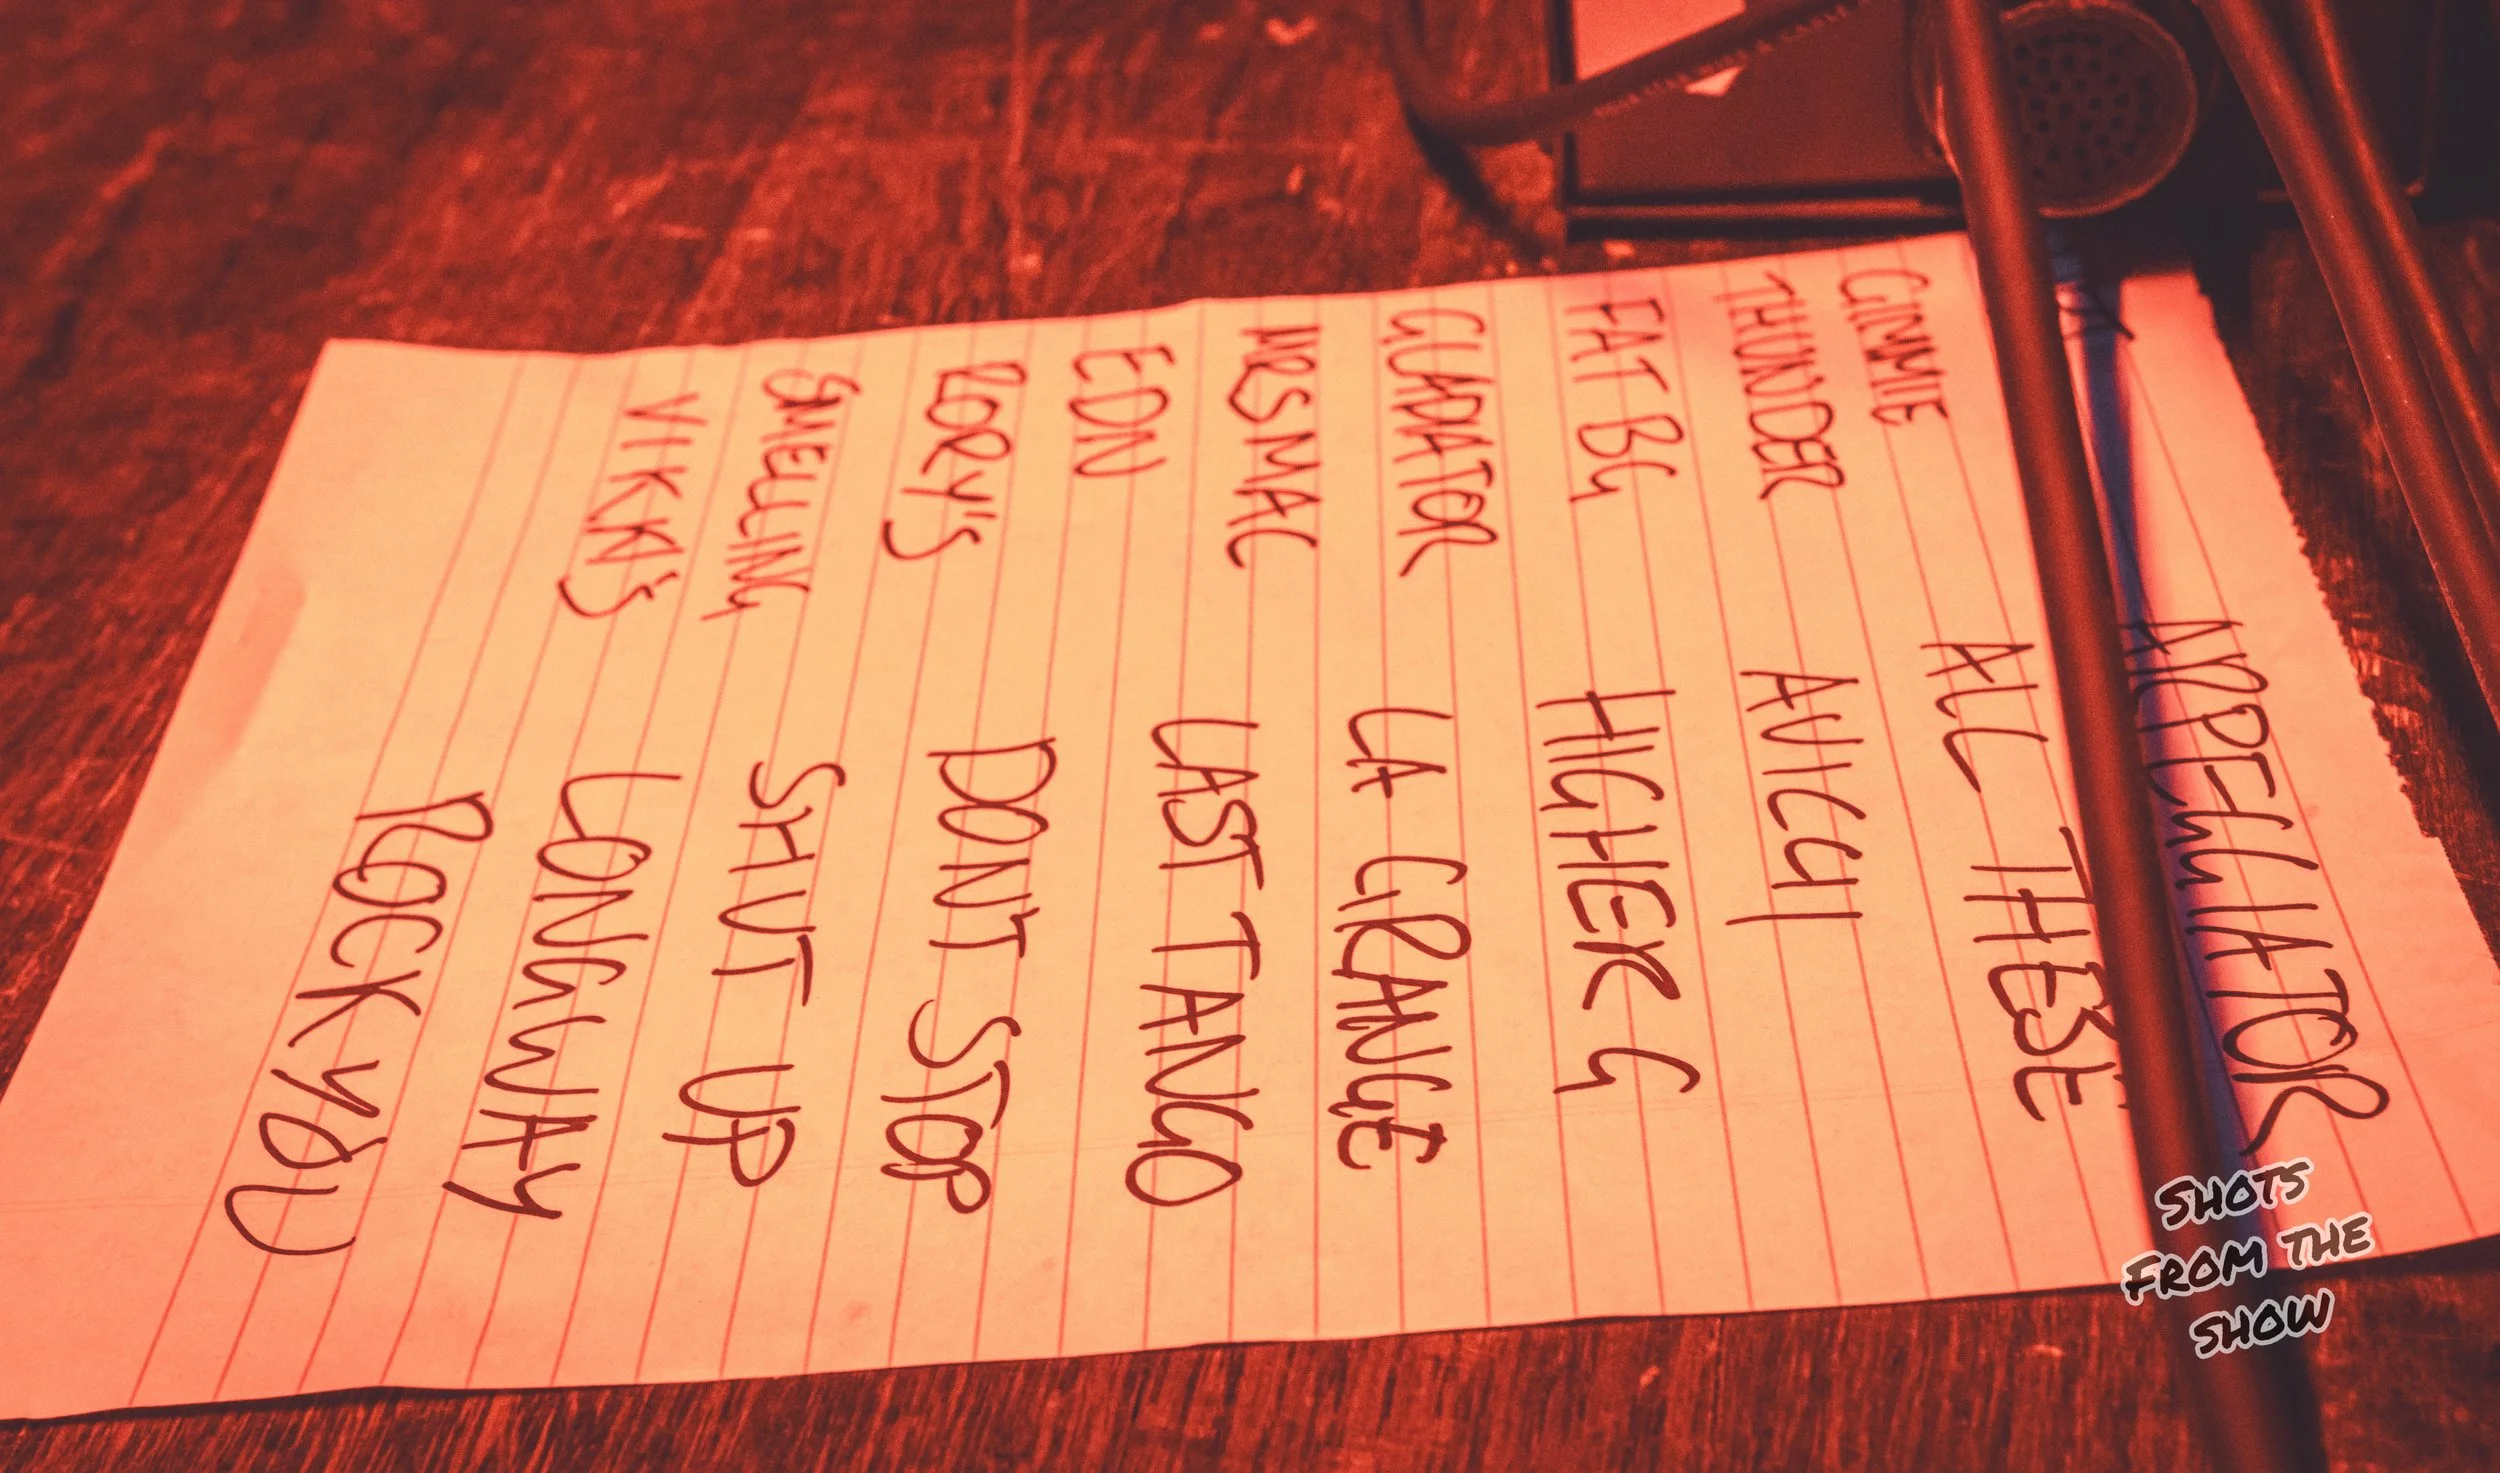 GIMMIE
THUNDER
FAT BG
GLADIATOR
MRS MAC
EDN
RORY'S
SMELLING
VIKKI'S
ARPEGGIATOR
ALL THESE
AVICCI
HIGHER G
LA GRANGE
LAST TANGO
DONT STOP
SHUT UP
LONG WAY
ROCK YOU
SHOTS
FROM THE
SHOW